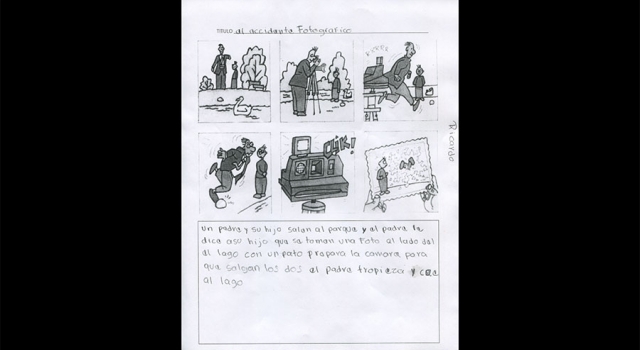 TITULO al accidanta Fotografico
CLIK!
Ricardo
Un padra y su hijo salan al parqua y al padra la
dica asu hijo qua sa toman una Foto al lado dal
al lago con un pato prapara la camara para
que salgan los dos el padre tropieza y cae
al lago